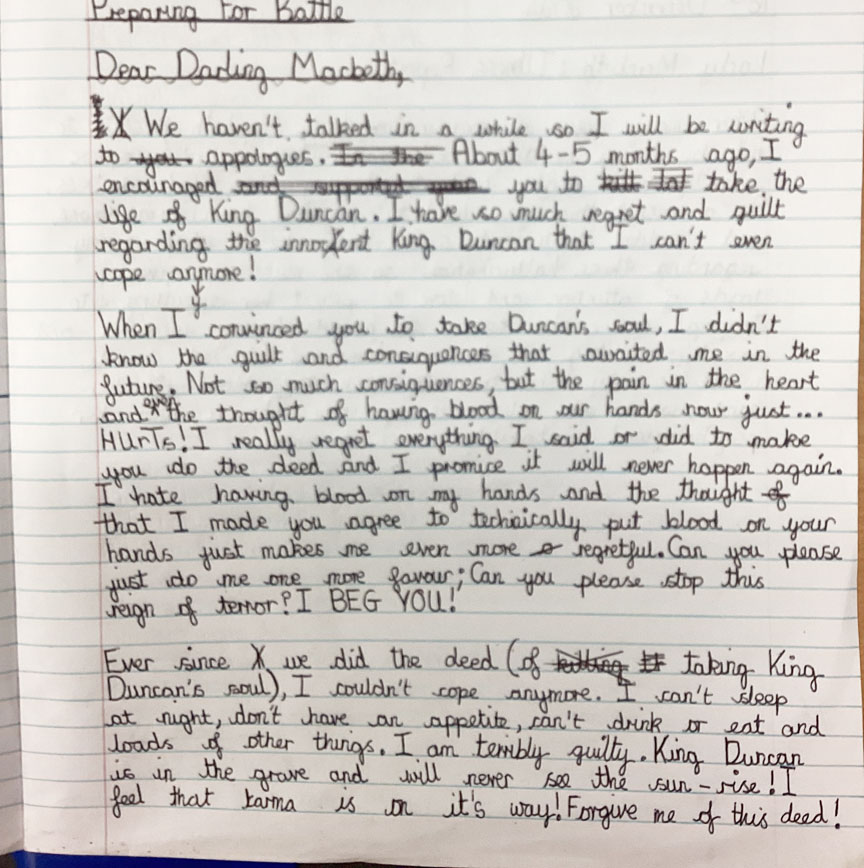 Preparing For Battle
Dear Darling Macbeth,
We haven't talked in a while so I will be writing
to you appologies. In the About 4-5 months ago, I
encouraged and supported you to kill take the
life of King Duncan. I have so much regret and guilt
regarding the innocent King Duncan that I can't even
cope anymore!
When I convinced you to take Duncan's soul, I didn't
know the guilt and consiquences that awaited me in the
future. Not so much consiquences, but the pain in the heart
and even the thought of having blood on our hands now just...
HURTS! I really regret everything I said or did to make
you do the deed and I promice it will never happen again.
I hate having blood on my hands and the thought of
that I made you agree to technically put blood on your
hands just makes me even more regretful. Can you please
just do me one more favour; Can you please stop this
reign of terror? I BEG YOU!
Ever since we did the deed (of killing taking King
Duncan's soul), I couldn't cope anymore. I can't sleep
at night, don't have an appetite, can't drink or eat and
loads of other things. I am terribly guilty. King Duncan
is in the grave and will never see the sun-rise! I
feel that karma is on it's way! Forgive me of this deed!